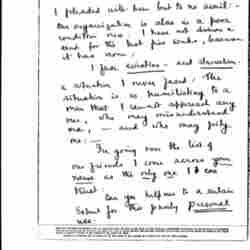 I pleaded with him but to no avail: -
The organization is also in a poor
condition now. I have not drawn a
cent for the last five weeks, because
it has none.
I face eviction - and starvation.
a situation I never faced. The
situation is so humiliating to a
man that I cannot approach any
one, who may misunderstand
me, - and who may pity
me: -
In going over the list of
our friends I come across your
name as the only one I can
trust.
Can you help me to a certain
extent for this purely personal
use: